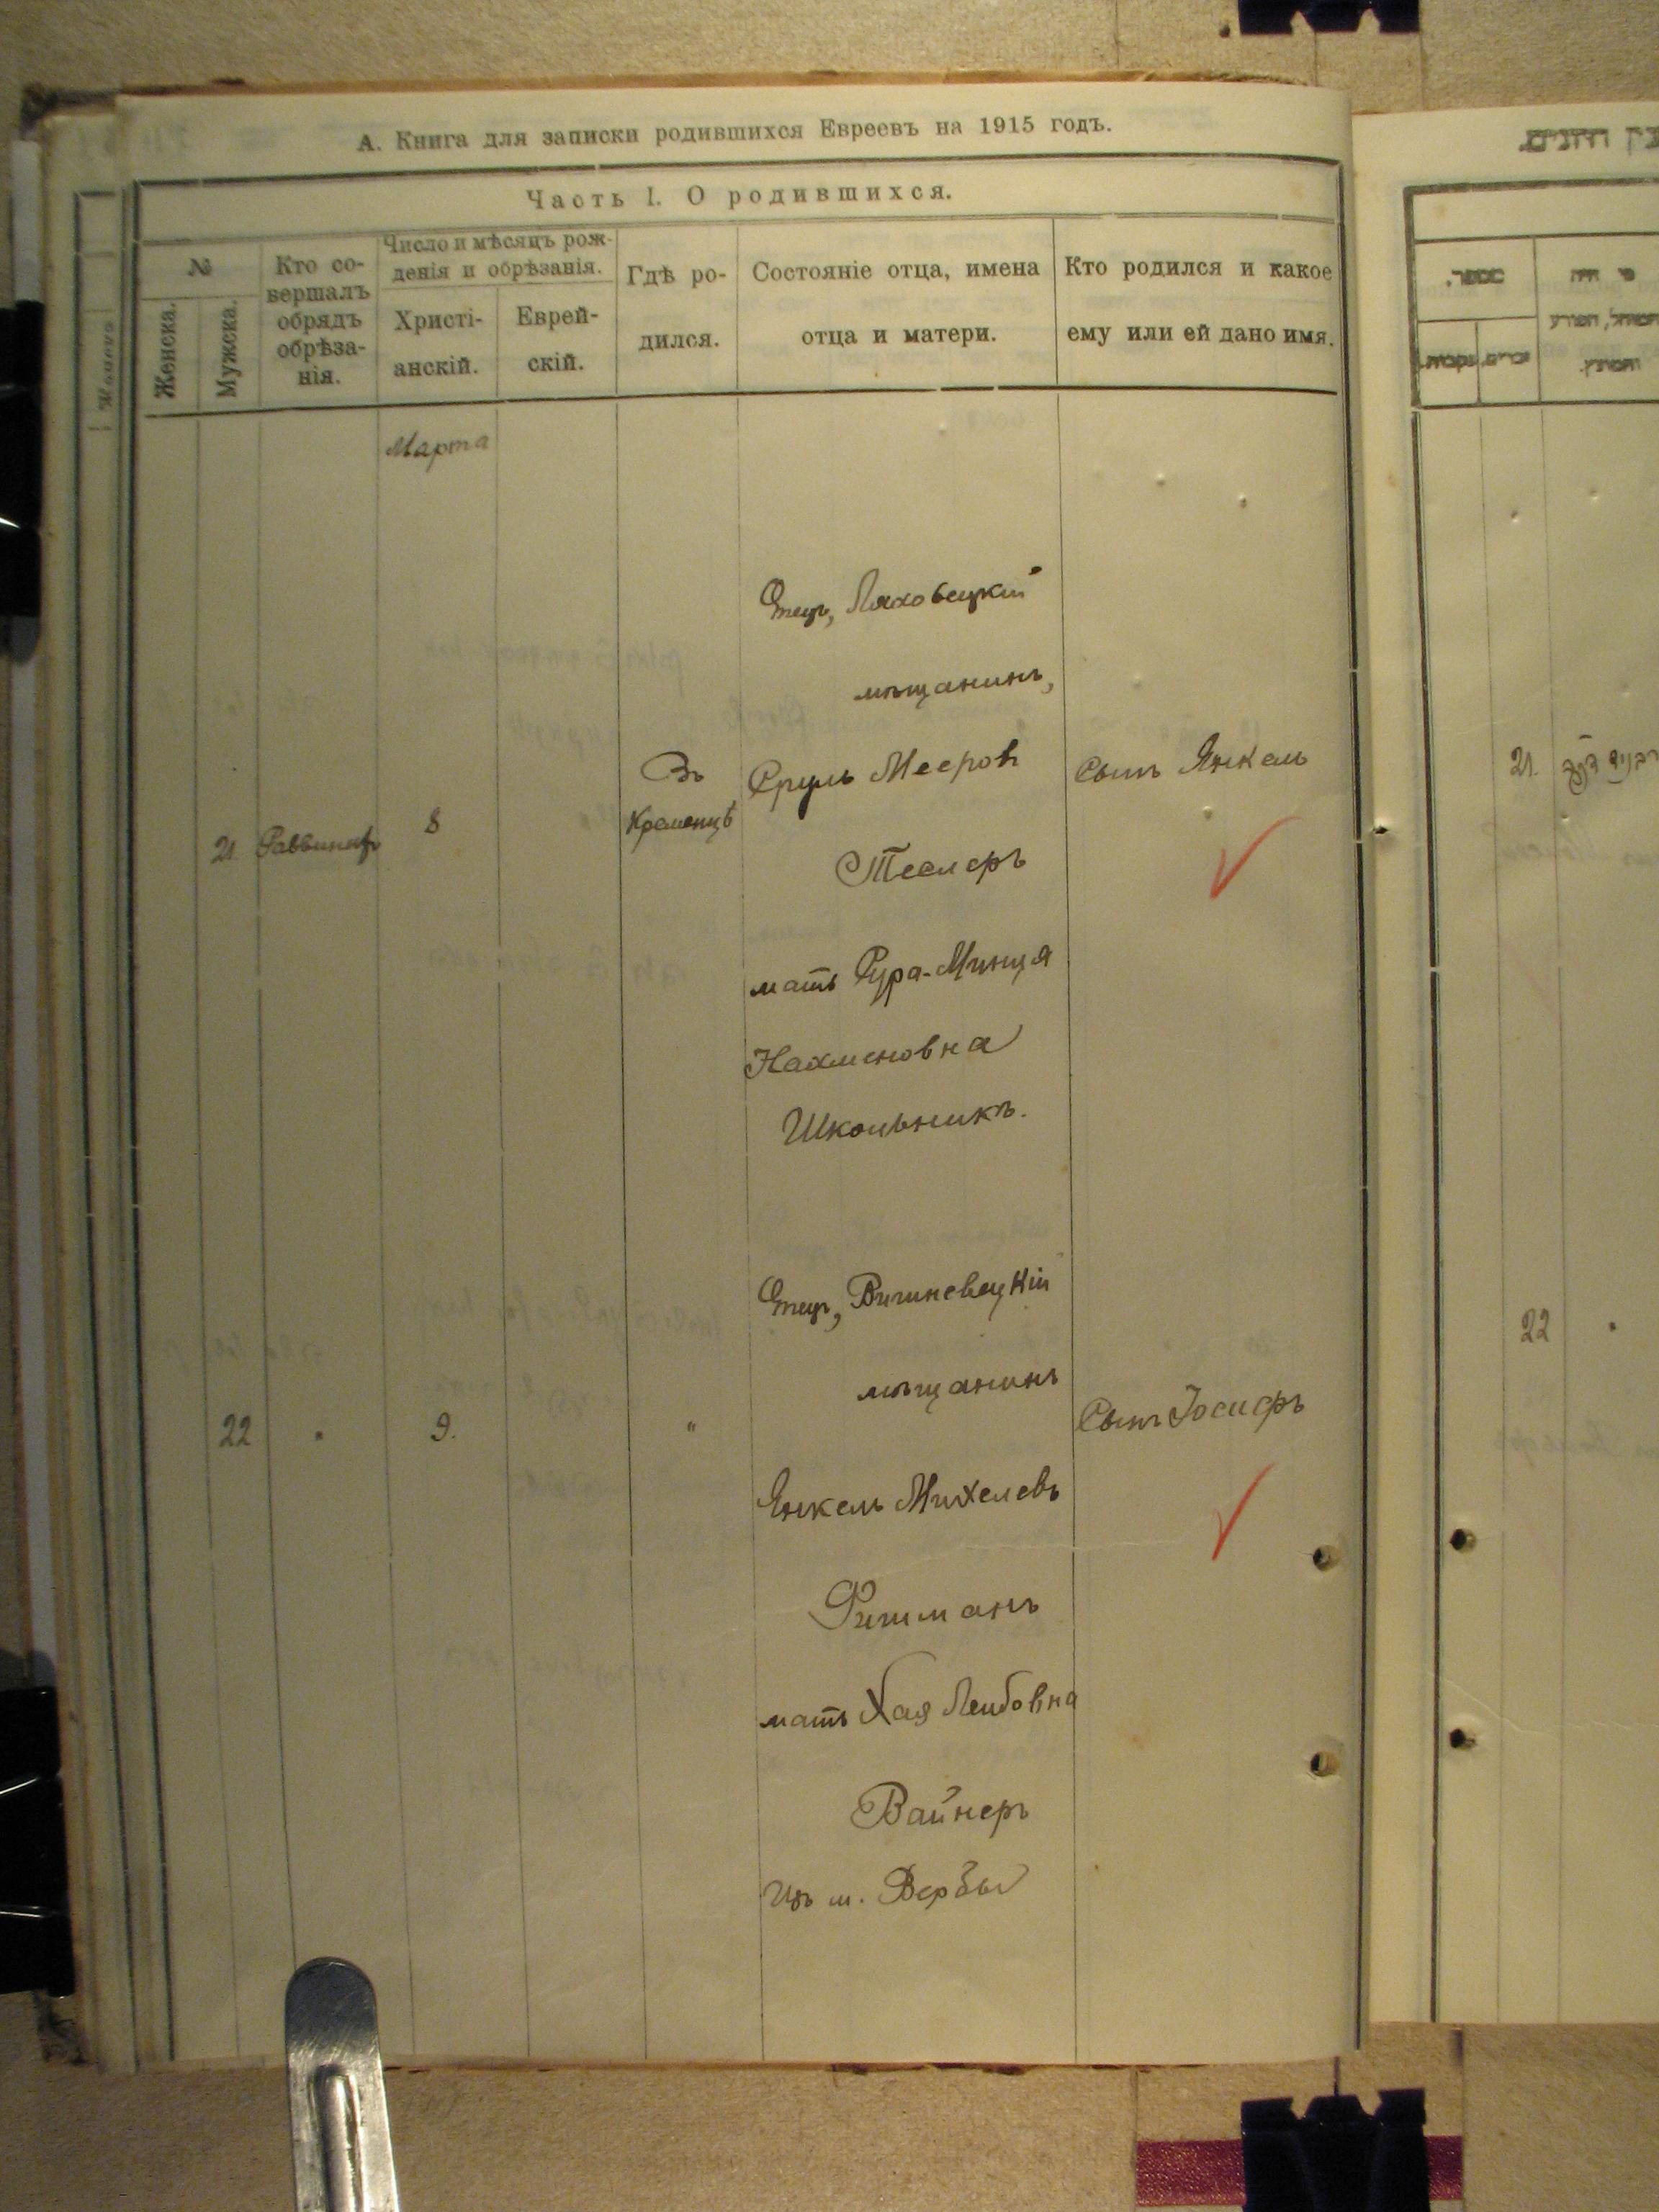 А. Книга для записки родившихся Евреевъ на 1915 годъ.
Часть I. О родившихся.
№
Женска.
Мужска.
Кто со-
вершалъ
обрядъ
обрѣза-
нія.
Число и мѣсяцъ рож-
денія и обрѣзанія.
Христі-
анскій.
Еврей-
скій.
Гдѣ ро-
дился.
Состояніе отца, имена
отца и матери.
Кто родился и какое
ему или ей дано имя.
Марта
21.
Раввинъ
8
Въ
Кременцѣ
Отецъ, Ляховецкій
мѣщанинъ,
Сруль Мееровъ
Теслеръ
мать Сура-Минця
Нахмановна
Школьникъ.
Сынъ Янкель
22
"
9.
"
Отецъ, Вишневецкій
мѣщанинъ
Янкель Михелевъ
Фишманъ
мать Хая Лейбовна
Вайнеръ
Изъ м. Вербы
Сынъ Іосифъ
מספר.
זכרים.
נקבות.
21.
22